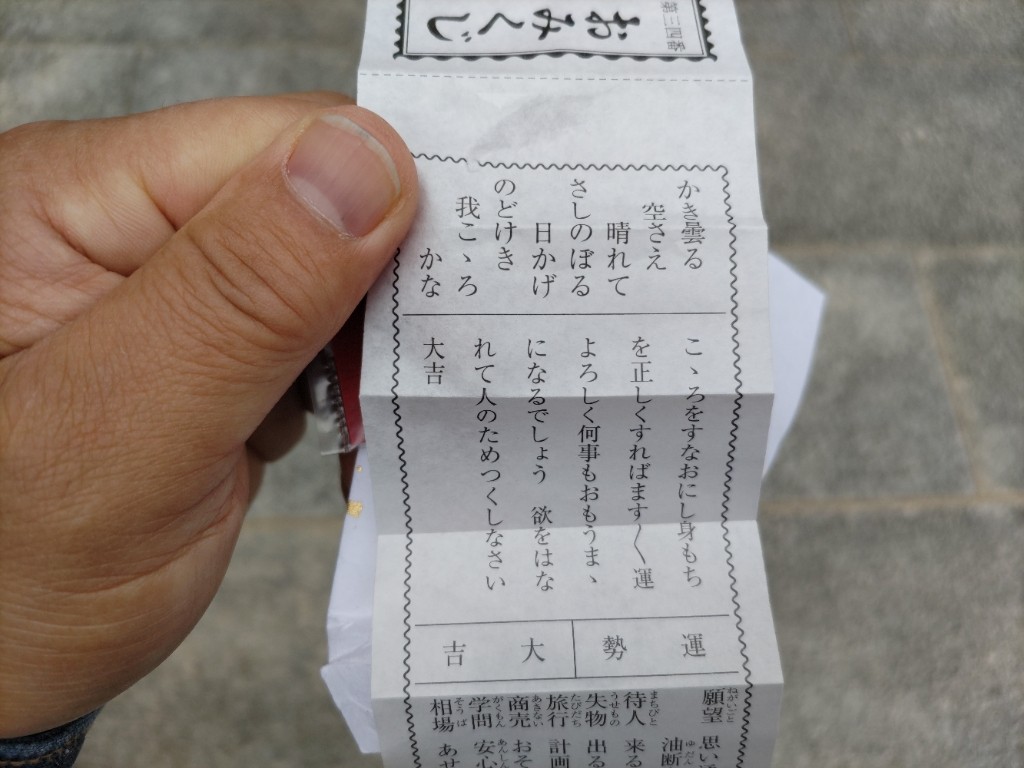 第三四番
おみくじ
かき曇る
空さえ
晴れて
さしのぼる
日かげ
のどけき
我こゝろ
かな
こゝろをすなおにし身もち
を正しくすればます〱運
よろしく何事もおもうまゝ
になるでしょう 欲をはな
れて人のためつくしなさい
大吉
運勢
大吉
願望 思い
油断
待人 来る
失物 出る
旅行 計画
商売 おそ
学問 安心
相場 あせ